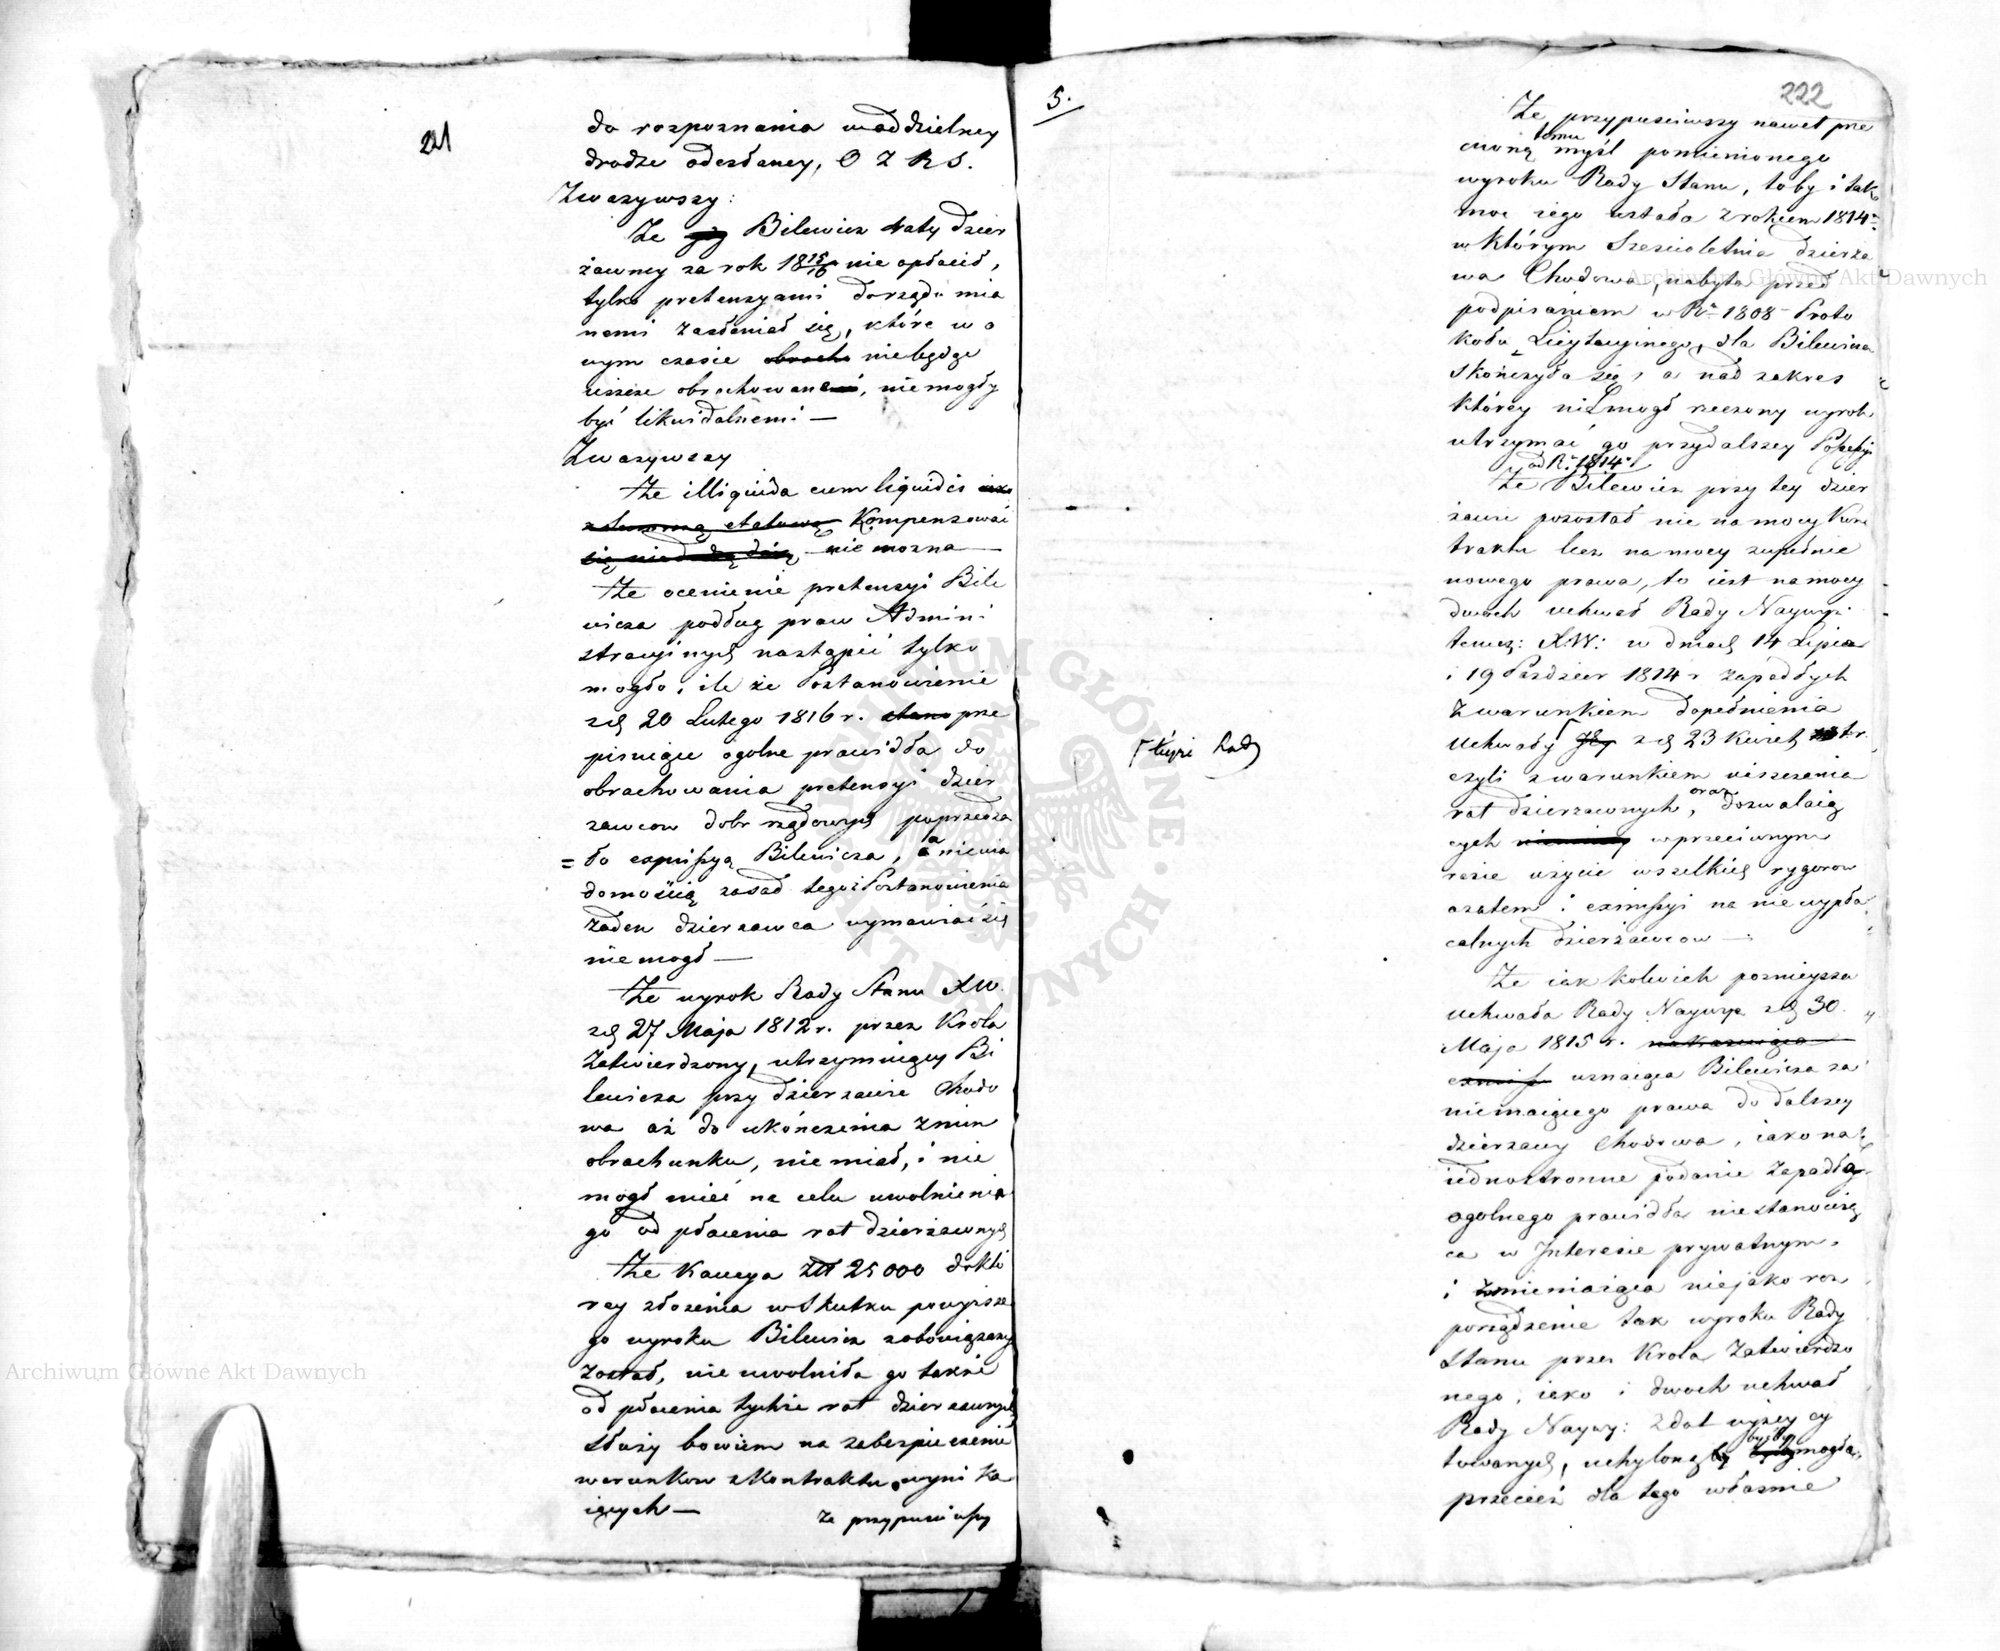 221
do rozpoznania w oddzielney
drodze odesłaney, O Z R S.
Zważywszy:
Że Bilewicz raty dzier
żawney za rok 18 15/16 nie opłacił,
tylko pretensyami do rządu mia
nemi zasłaniał się, które w o
wym czasie nie będąc
ieszcze obrachowane, nie mogły
być likwidalnemi —
Zważywszy
że illiquida cum liquidis
kompensować
nie można —
że ocenienie pretensyi Bile
wicza podług praw Admini
stracyinych nastąpić tylko
mogło, ile że Postanowienie
z d. 20 Lutego 1816 r. prze
pisuiące ogolne prawidła do
obrachowania pretensyi dzier
żawcow dobr rządowych poprzedza
= ło exmissyą Bilewicza, a niewia
domością zasad tegoż Postanowienia
żaden dzierżawca wymawiać się
nie mogł —
że wyrok Rady Stanu X.W.
z d. 27 Maja 1812 r. przez Krola
zatwierdzony, utrzymuiący Bi
lewicza przy dzierżawie Chodo
wa aż do ukończenia z nim
obrachunku, nie miał, i nie
mogł mieć na celu uwolnienia
go od płacenia rat dzierżawnych
że kaucya Złt 25000 do kto
rey złożenia w skutku powyższe
go wyroku Bilewicz zobowiązany
został, nie uwolniła go także
od płacenia tychże rat dzierżawnych
służy bowiem na zabezpieczenie
warunkow z kontraktu wynika
iących —
że przypuściwszy
5.
222
Że przypuściwszy nawet prze
ciwną temu myśl pomienionego
wyroku Rady Stanu, toby i tak
moc iego ustała z rokiem 1814
w którym sześcioletnia dzierża
wa Chodowa, nabyta przed
podpisaniem w R. 1808 Proto
kołu Licytacyinego, dla Bilewicza
skończyła się, a nad zakres
którey nie mogł rzeczony wyrok
utrzymać go przy dalszey Possessyi
od R. 1814
że Bilewicz przy tey dzier
żawie pozostał nie na mocy kon
traktu lecz na mocy zupełnie
nowego prawa, to iest na mocy
dwoch uchwał Rady Naywyż:
tymcz: X.W: w dniach 14 Lipca
i 19 Paździer 1814 r zapadłych
z warunkiem dopełnienia
uchwały z d. 23 Kwiet t.r.
czyli z warunkiem uiszczenia
rat dzierżawnych, oraz dozwalaią
cych w przeciwnym
razie użycie wszelkich rygorow
a zatem i exmissyi na niewypła
calnych dzierżawcow —
Że iak kolwiek poznieysza
uchwała Rady Naywyż z d. 30
Maja 1815 r.
uznaiąca Bilewicza za
niemaiącego prawa do dalszey
dzierżawy Chodowa, iako na
iednostronne podanie zapadła,
ogolnego prawidła nie stanowią
ca w Interesie prywatnym,
i zmieniaiąca nieiako roz
porządzenie tak wyroku Rady
Stanu przez Krola zatwierdzo
nego, iako i dwoch uchwał
Rady Naywy: z dat wyżey cy
towanych, uchyloną byćby mogła,
przecież dla tego właśnie